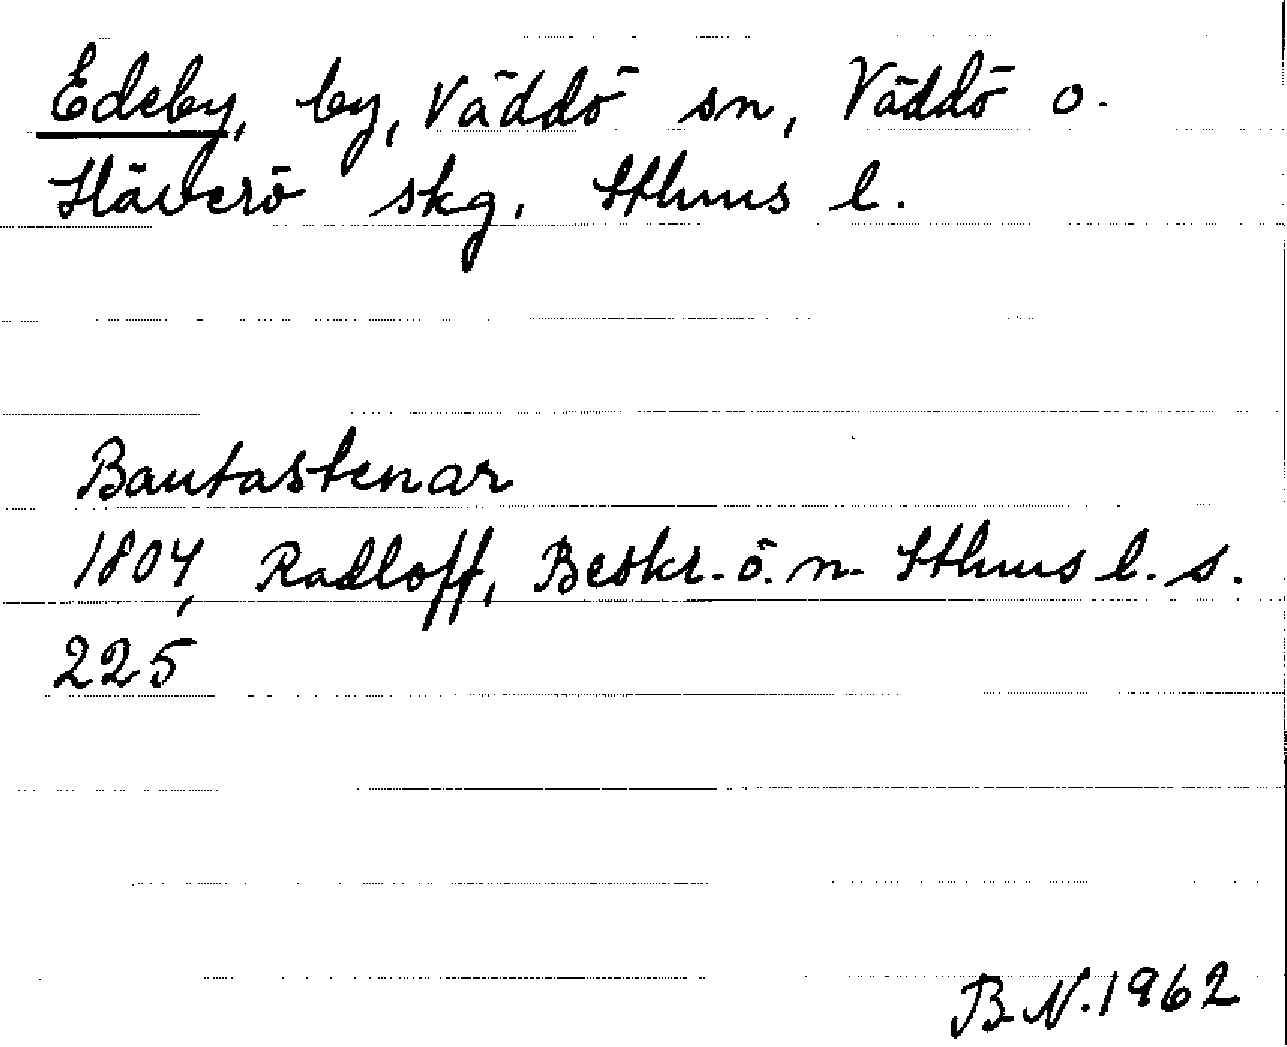 Edeby, by, Väddö sn, Väddö o.
Häverö skg, Sthms l.
Bautastenar
1804, Radloff, Beskr. ö. n. Sthms l. s.
225
B.N. 1962